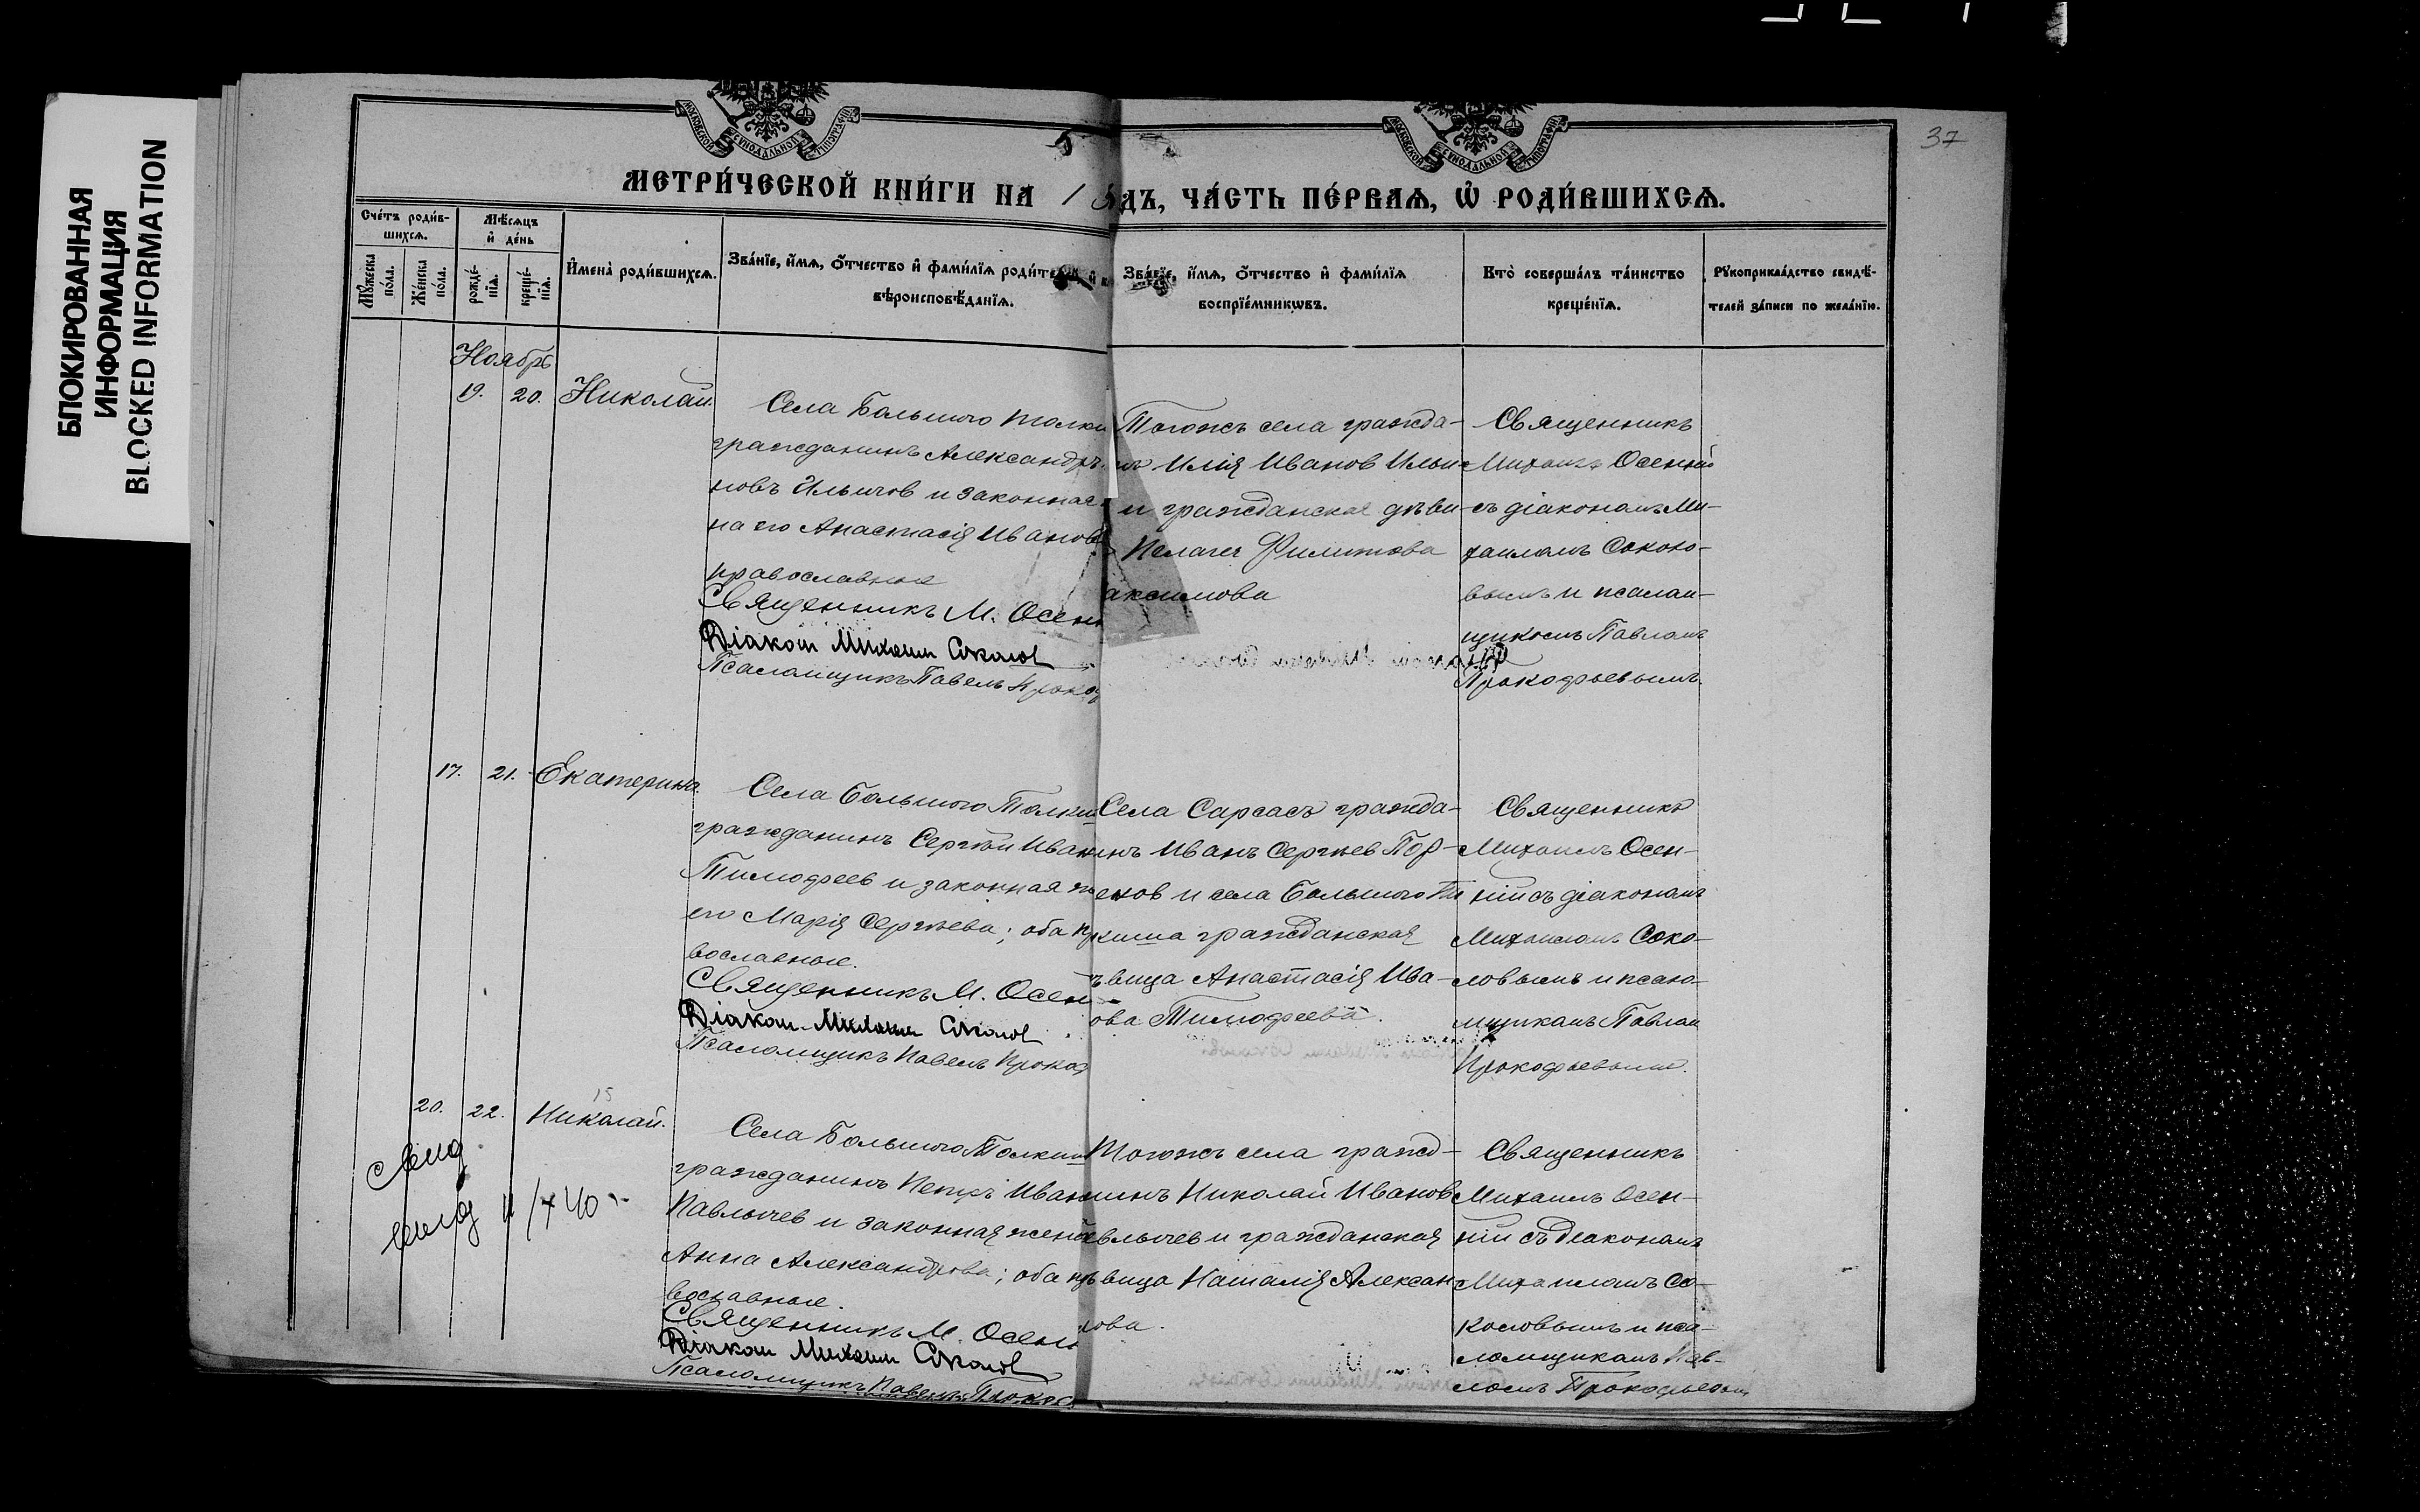 БЛОКИРОВАННАЯ
ИНФОРМАЦИЯ
BLOCKED INFORMATION
37
МОСКОВСКОЙ СУНОДАЛЬНОЙ ТИПОГРАФІИ
МОСКОВСКОЙ СУНОДАЛЬНОЙ ТИПОГРАФІИ
МЕТРИ́ЧЕСКОЙ КНИ́ГИ НА 1
ДЪ, ЧА́СТЬ ПЕ́РВАѦ, Ѡ РОДИ́ВШИХСѦ.
Сче́тъ роди́в-
шихсѧ.
Мѣ́сѧцъ
и҆ де́нь
Мꙋ́жеска
по́ла.
Же́нска
по́ла.
рожде́-
нїѧ.
креще́-
нїѧ.
И҆мена̀ роди́вшихсѧ.
Зва́нїе, и҆́мѧ, ѻ҆́тчество и҆ фами́лїѧ роди́те
вѣроисповѣ́данїѧ.
Зва́нїе, и҆́мѧ, ѻ҆́тчество и҆ фами́лїѧ
воспрїе́мникѡвъ.
Кто̀ соверша́лъ та́инство
креще́нїѧ.
Рꙋкоприкла́дство свидѣ́-
телей за́писи по жела́нїю.
Ноябрь
19. 20. Николай.
Села Большого Толки
гражданинъ Александръ
новъ Ильичов и законная
на его Анастасія Иванов
православные
Священникъ М. Осен
Діакон Михаил Соколов
Псаломщикъ Павелъ Проко
Тогожъ села гражда-
нъ Илія Иванов Ильи
и гражданская дѣви-
Пелагея Филипова
аксимова
Священникъ
Михаилъ Осенній
съ діакономъ Ми-
хаиломъ Соколо-
вымъ и псалом-
щикомъ Павломъ
Прокофьевымъ.
17. 21. Екатерина.
Села Большого Толки
гражданинъ Сергѣй Иван
Тимофеев и законная
его Марія Сергѣева; оба пр
вославные.
Священникъ М. Осен
Діакон Михаил Соколов
Псаломщикъ Павелъ Проко
Села Сарсасъ гражда-
инъ Иванъ Сергѣев
енов и села Большого То
киша гражданская
ѣвица Анастасія Ива-
ова Тимофеева.
Священникъ
Михаилъ Осен-
ній съ діакономъ
Михаиломъ Соко-
ловымъ и псало-
мщикомъ Павлом
Прокофьевымъ.
20. 22. 15 Николай.
Села Большого Толкиш
гражданинъ Петръ Иван
Павлычев и законная жена
Анна Александрова; оба пр
вославные.
Священникъ М. Осен
Діакон Михаил Соколов
Псаломщикъ Павелъ Прокоф
Тогожъ села гражд-
нинъ Николай Иванов
авлычев и гражданская
ѣвица Наталія Алексан
ова.
Священникъ
Михаилъ Осен-
ній съ діакономъ
Михаиломъ Со-
коловымъ и пса-
ломщикомъ Пав-
ломъ Прокофьевым